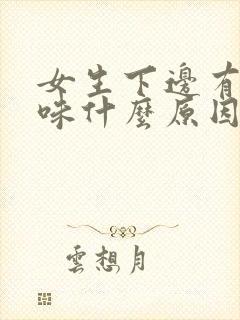 女生下邊有
味什麼原因
雲想月